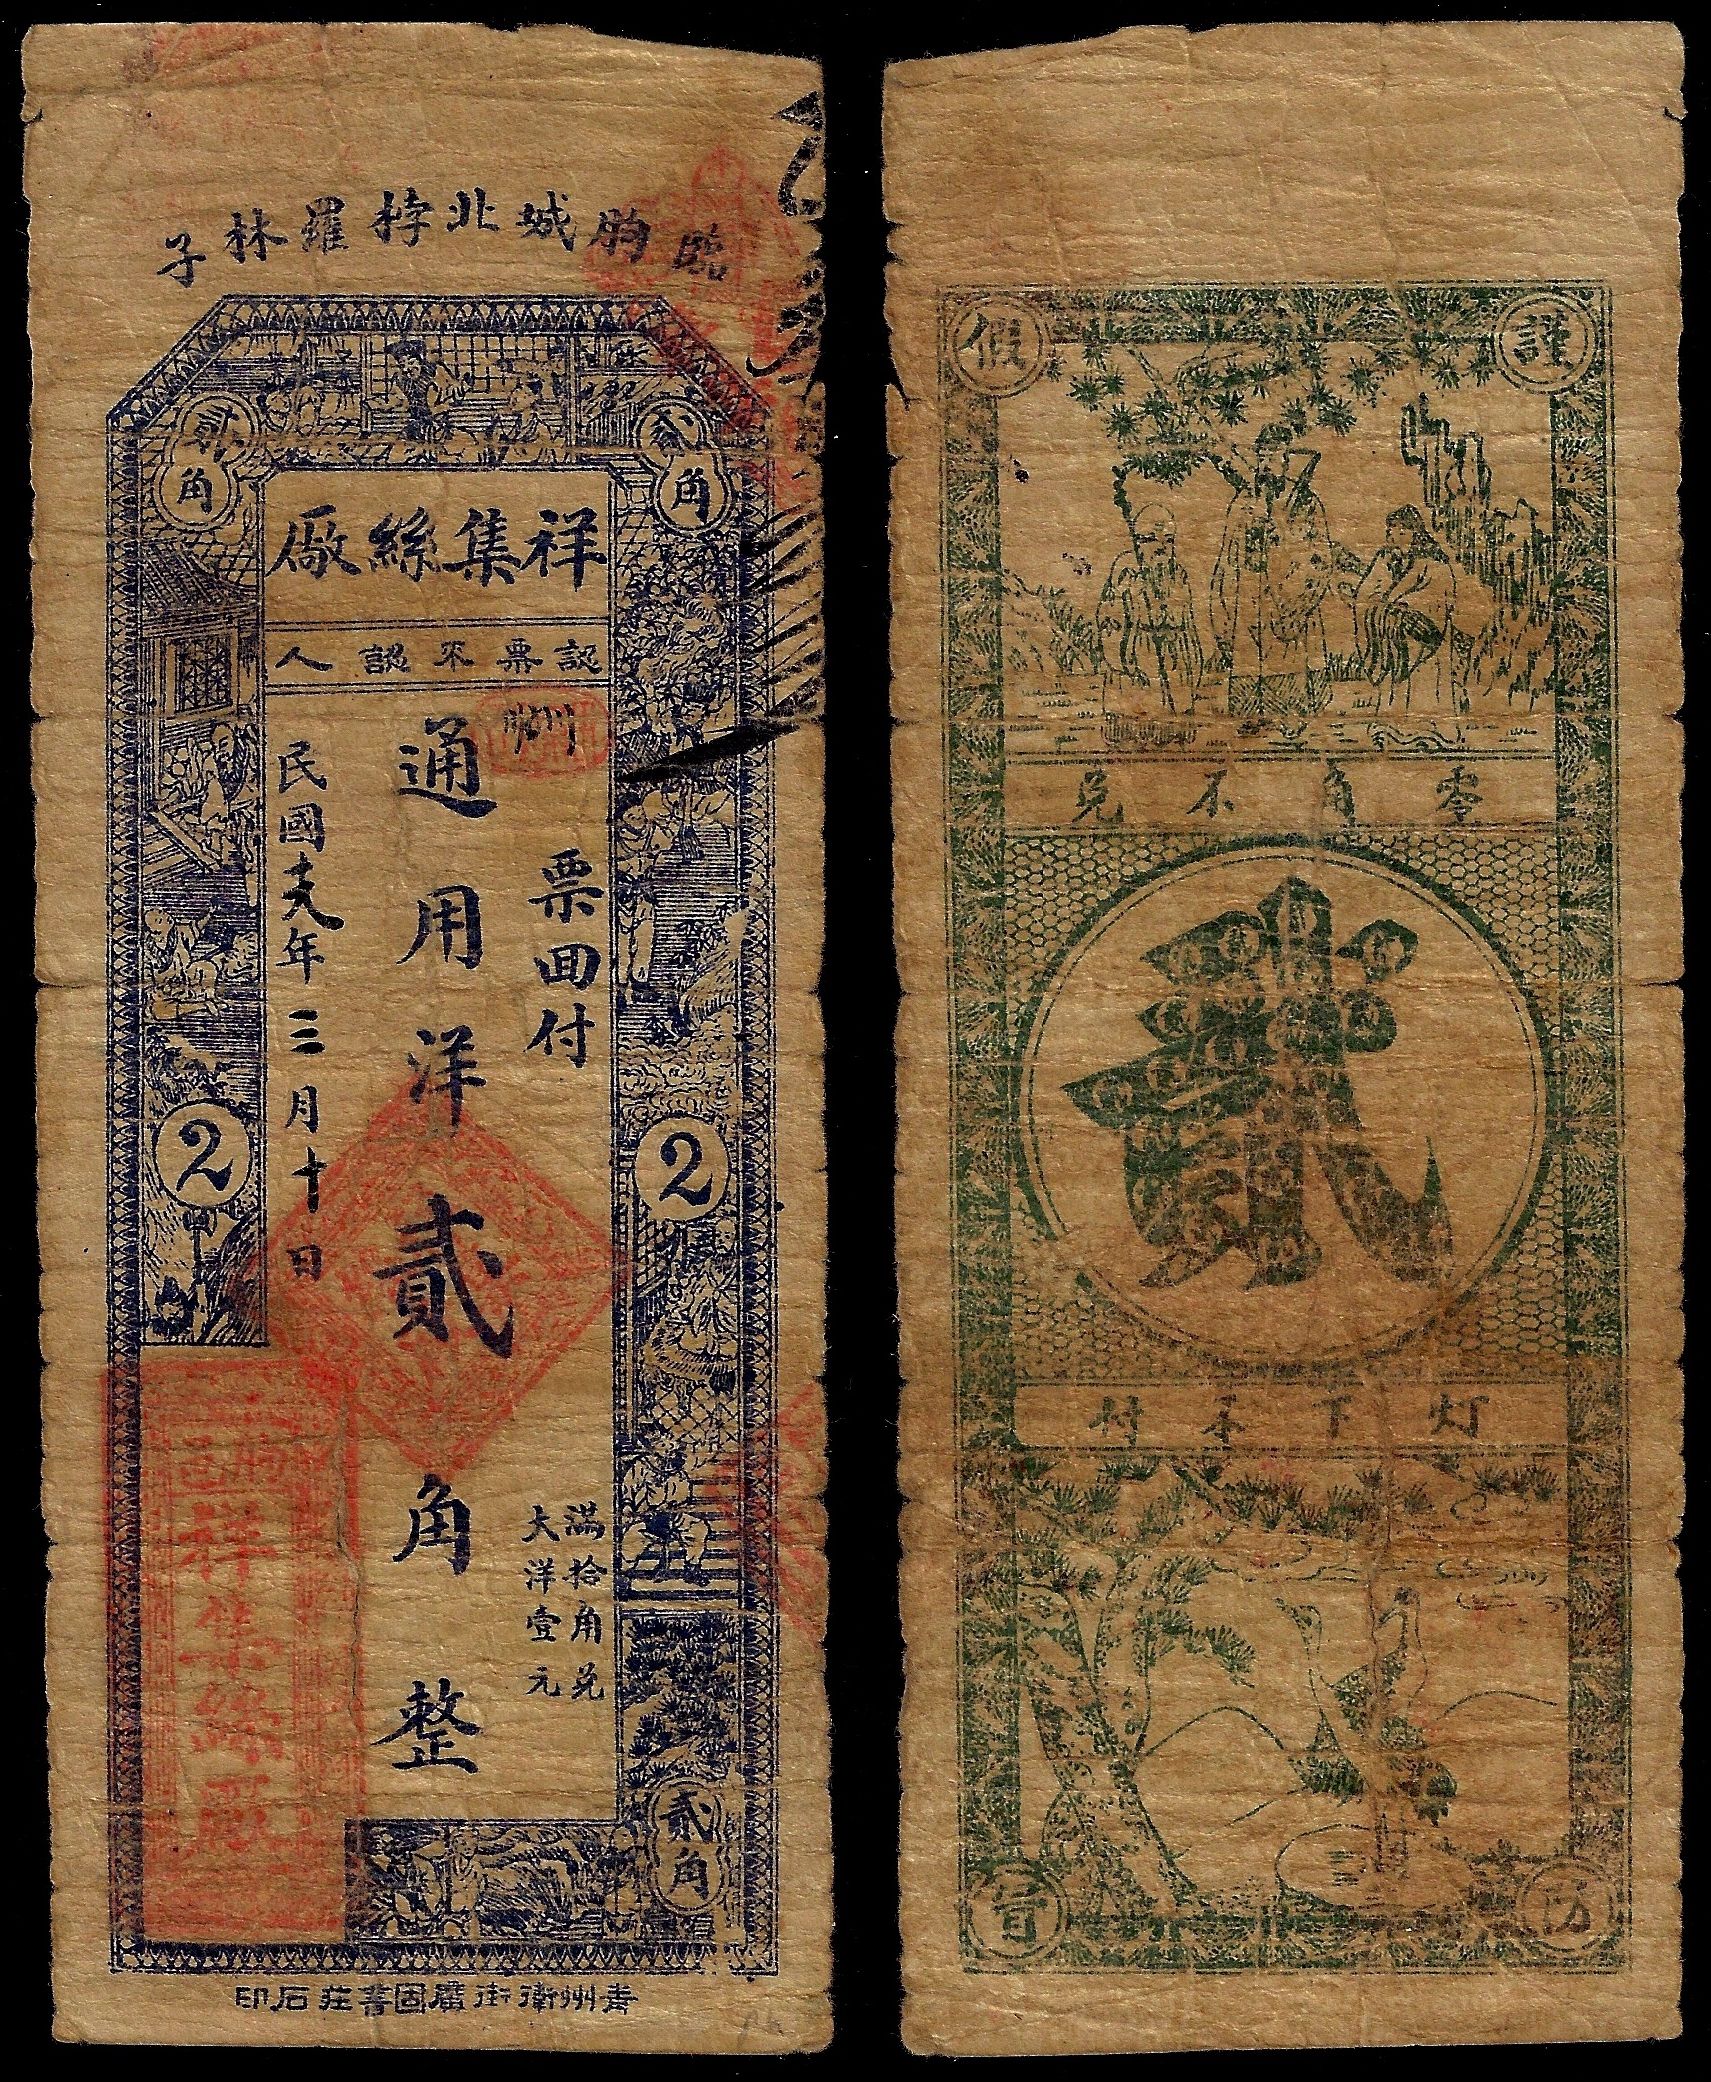 臨朐城北桲羅林子
貳角
貳角
祥集絲廠
認票不認人
票囬付
通用洋貳角整
滿拾角兑
大洋壹元
民國
年三月十日
2
2
貳角
朐邑
祥集絲廠
青州衛街廣固書莊石印
謹
假
零角不兑
貳
灯下不付
防
冒